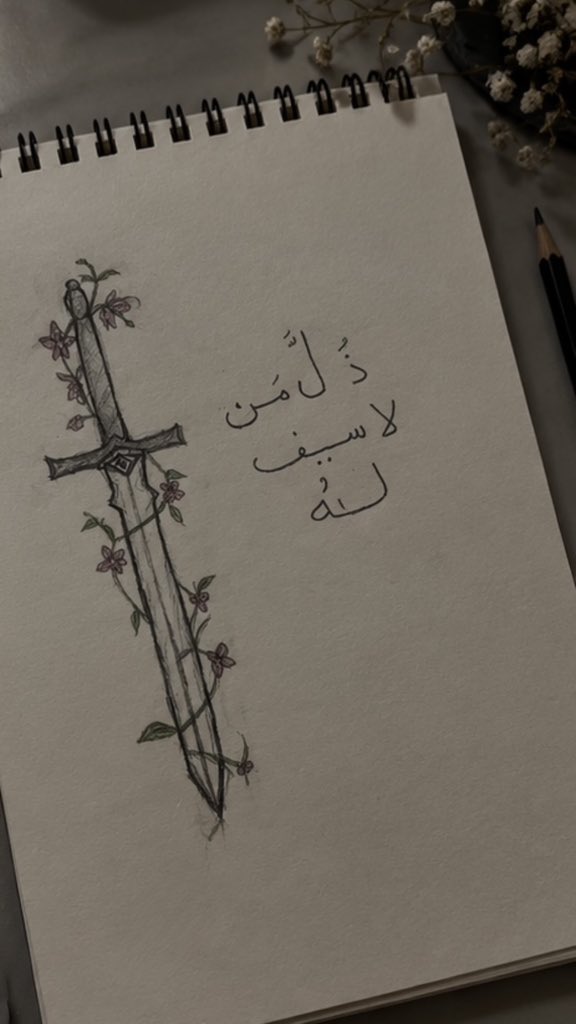 ذُلَّ مَن
لا سيف
لهُ